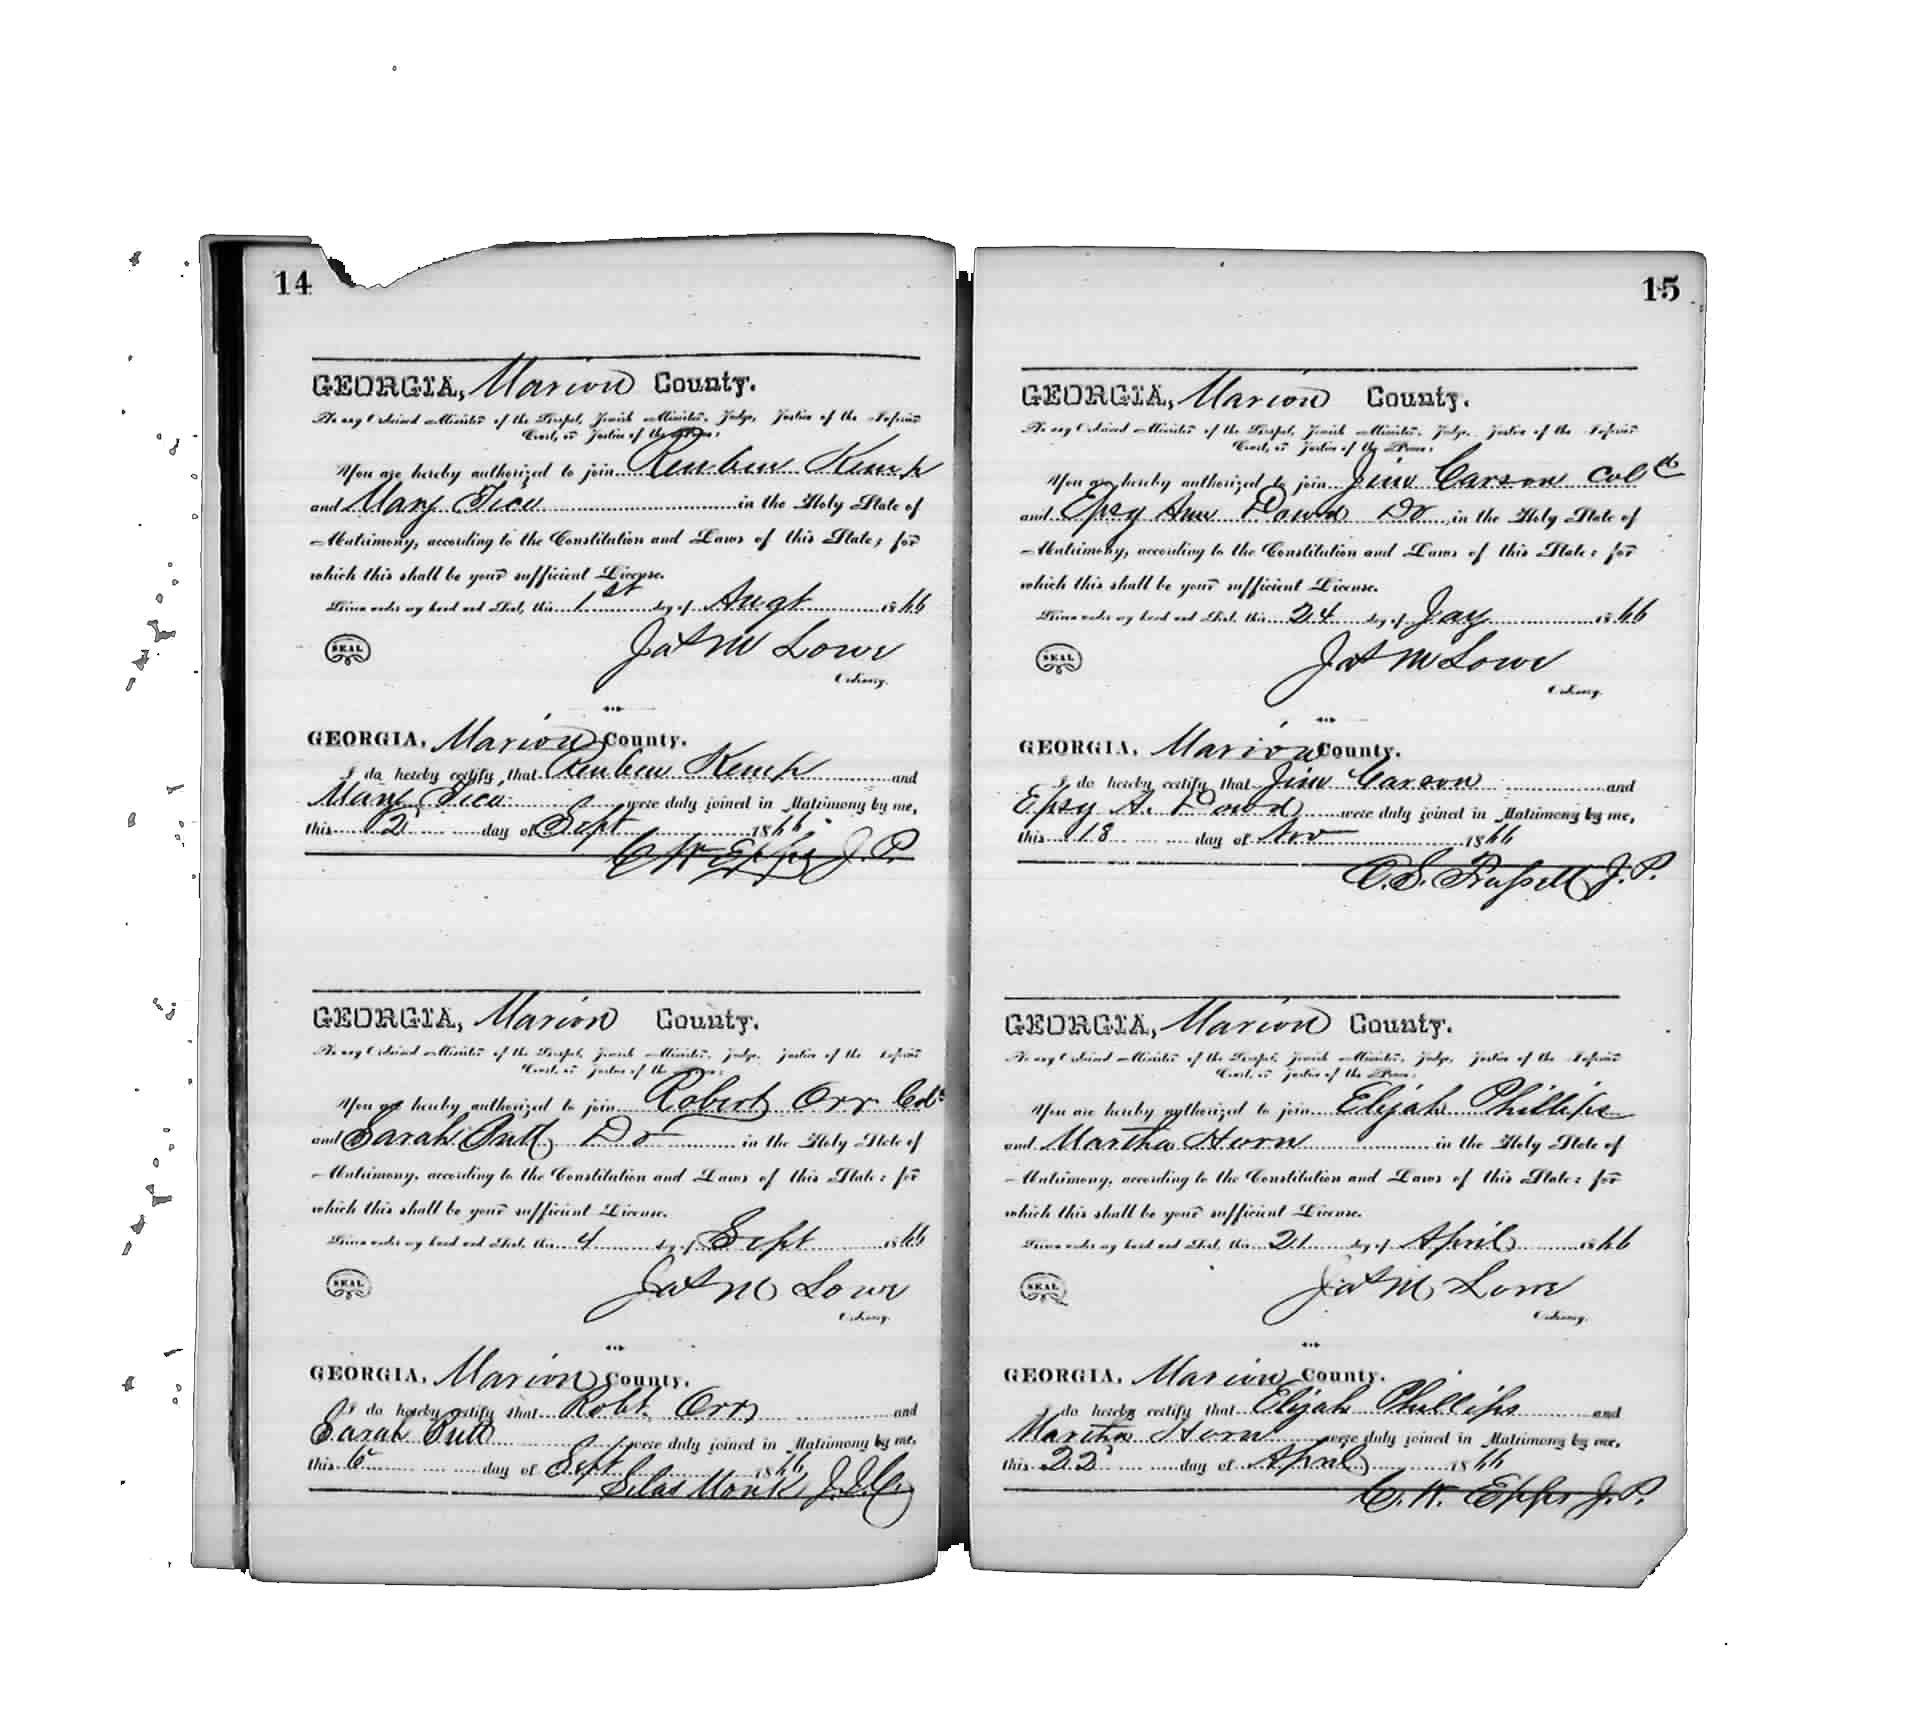 14
GEORGIA, Marion County.
To any Ordained Minister of the Gospel, Jewish Minister, Judge, Justice of the Inferior
Court, or Justice of the Peace:
You are hereby authorized to join Reuben Kemp
and Mary Tice in the Holy State of
Matrimony, according to the Constitution and Laws of this State; for
which this shall be your sufficient License.
Given under my hand and Seal, this 1st day of Augt 1866
SEAL
Jas M Lowe
Ordinary.
GEORGIA, Marion County.
I do hereby certify that Reuben Kemp and
Mary Tice were duly joined in Matrimony by me,
this 2 day of Sept 1866.
C W Epps J. P.
GEORGIA, Marion County.
To any Ordained Minister of the Gospel, Jewish Minister, Judge, Justice of the Inferior
Court, or Justice of the Peace:
You are hereby authorized to join Robert Orr Cold
and Sarah Butt Do in the Holy State of
Matrimony, according to the Constitution and Laws of this State; for
which this shall be your sufficient License.
Given under my hand and Seal, this 4 day of Sept 1866
SEAL
Jas M Lowe
Ordinary.
GEORGIA, Marion County.
I do hereby certify that Robt. Orr and
Sarah Butt were duly joined in Matrimony by me,
this 6 day of Sept 1866
Silas Monk J.I.C.
15
GEORGIA, Marion County.
To any Ordained Minister of the Gospel, Jewish Minister, Judge, Justice of the Inferior
Court, or Justice of the Peace:
You are hereby authorized to join Jim Carson Cold
and Epsy Ann Dowd Do in the Holy State of
Matrimony, according to the Constitution and Laws of this State; for
which this shall be your sufficient License.
Given under my hand and Seal, this 24 day of Jay 1866
SEAL
Jas M Lowe
Ordinary.
GEORGIA, Marion County.
I do hereby certify that Jim Carson and
Epsy A. Dowd were duly joined in Matrimony by me,
this 18 day of Nov 1866
C. S. Russell J. P.
GEORGIA, Marion County.
To any Ordained Minister of the Gospel, Jewish Minister, Judge, Justice of the Inferior
Court, or Justice of the Peace:
You are hereby authorized to join Elijah Phillips
and Martha Horn in the Holy State of
Matrimony, according to the Constitution and Laws of this State; for
which this shall be your sufficient License.
Given under my hand and Seal, this 21 day of April 1866
SEAL
Jas M Lowe
Ordinary.
GEORGIA, Marion County.
I do hereby certify that Elijah Phillips and
Martha Horn were duly joined in Matrimony by me,
this 22 day of April 1866
C. W. Epps J. P.